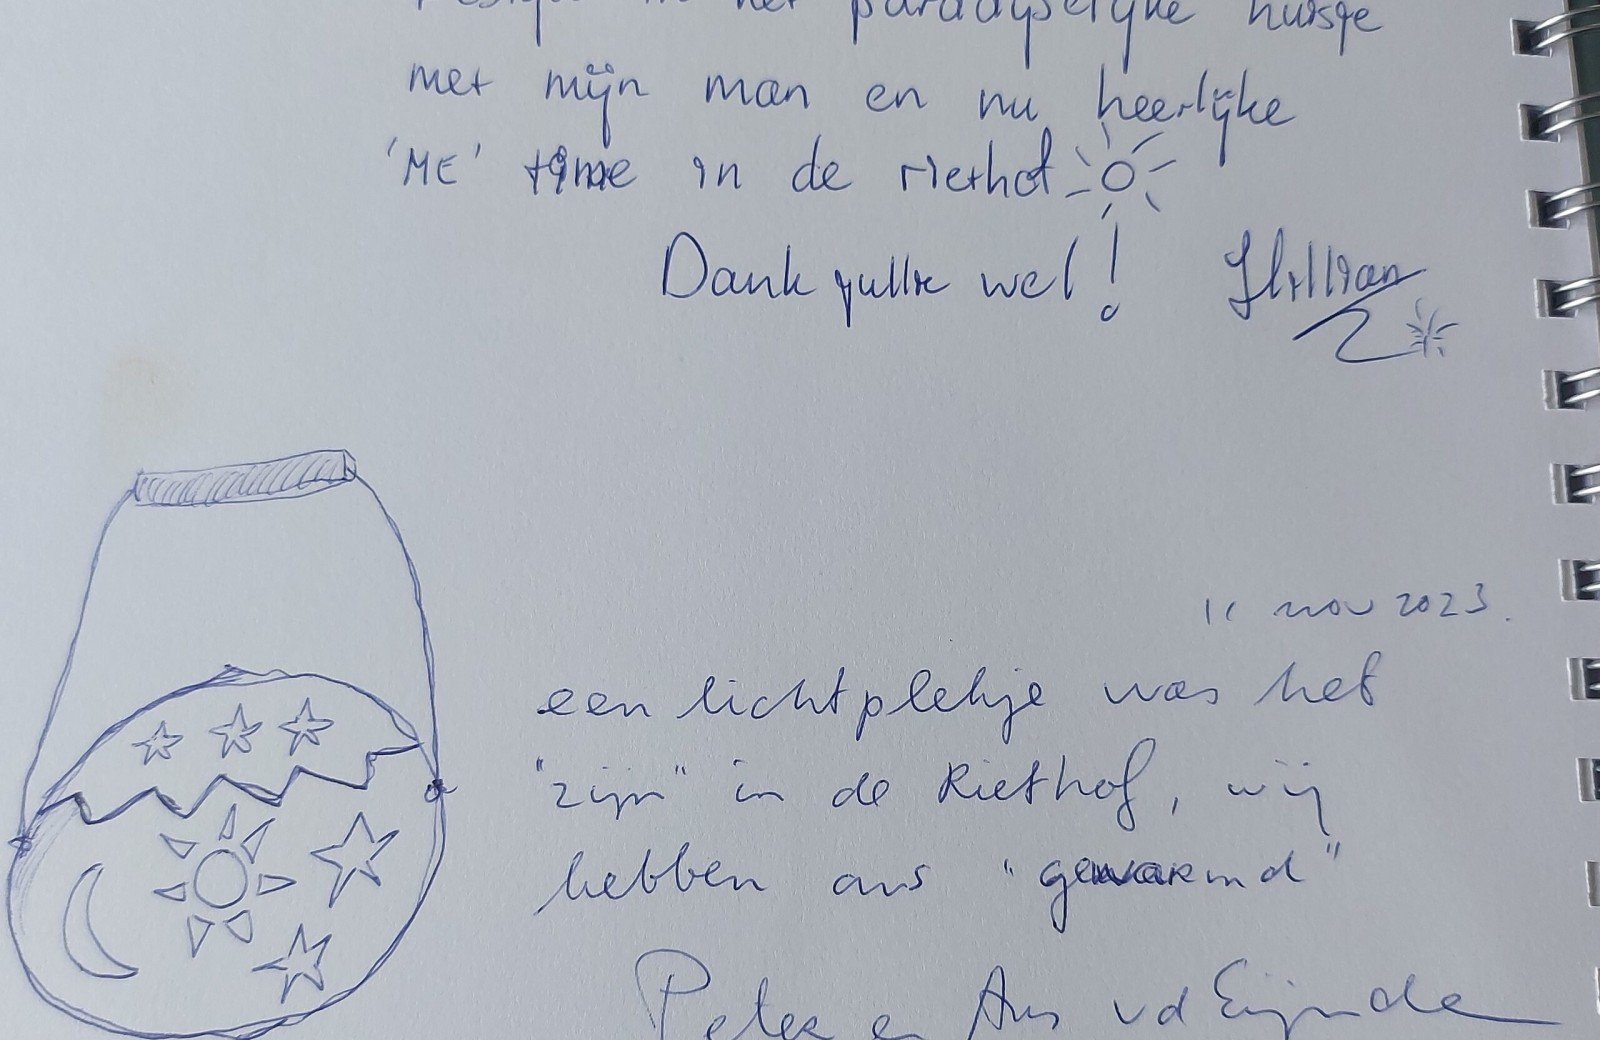 in het paradijselijke huisje
met mijn man en nu heerlijke
'ME' time in de riethof
Dank jullie wel!
11 nov 2023.
een lichtplekje was het
"zijn" in de Riethof, wij
hebben ons "gewarmd"
Peter en Ans vd Eijnde